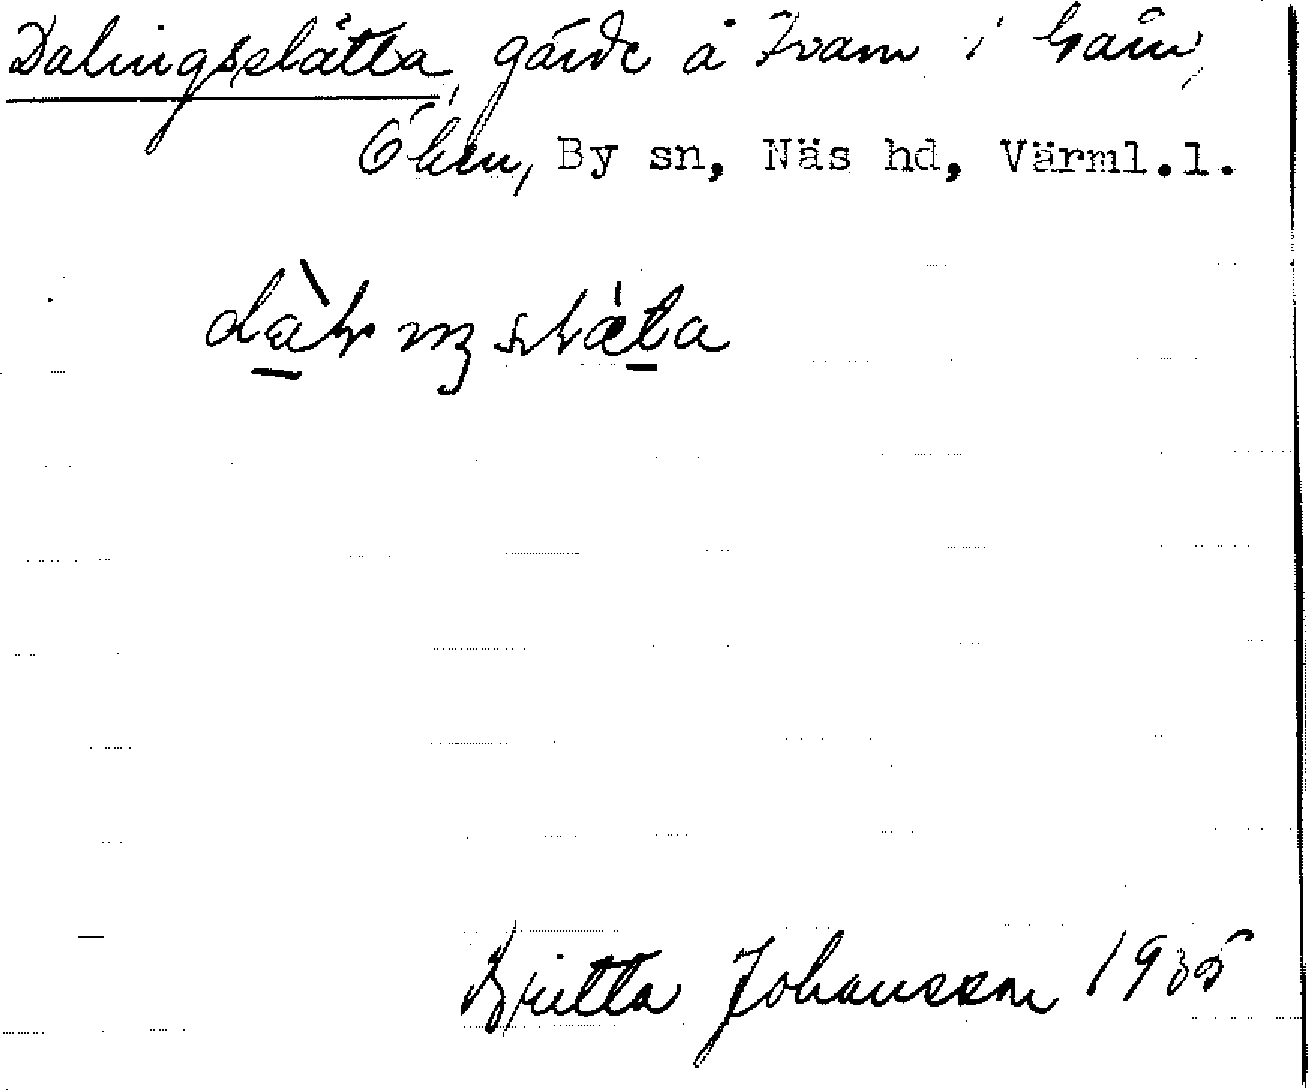 Dalingsslätta, gärde å Tvam i
Ölen, By sn, Näs hd, Värml.l.
Britta Johansson 1935